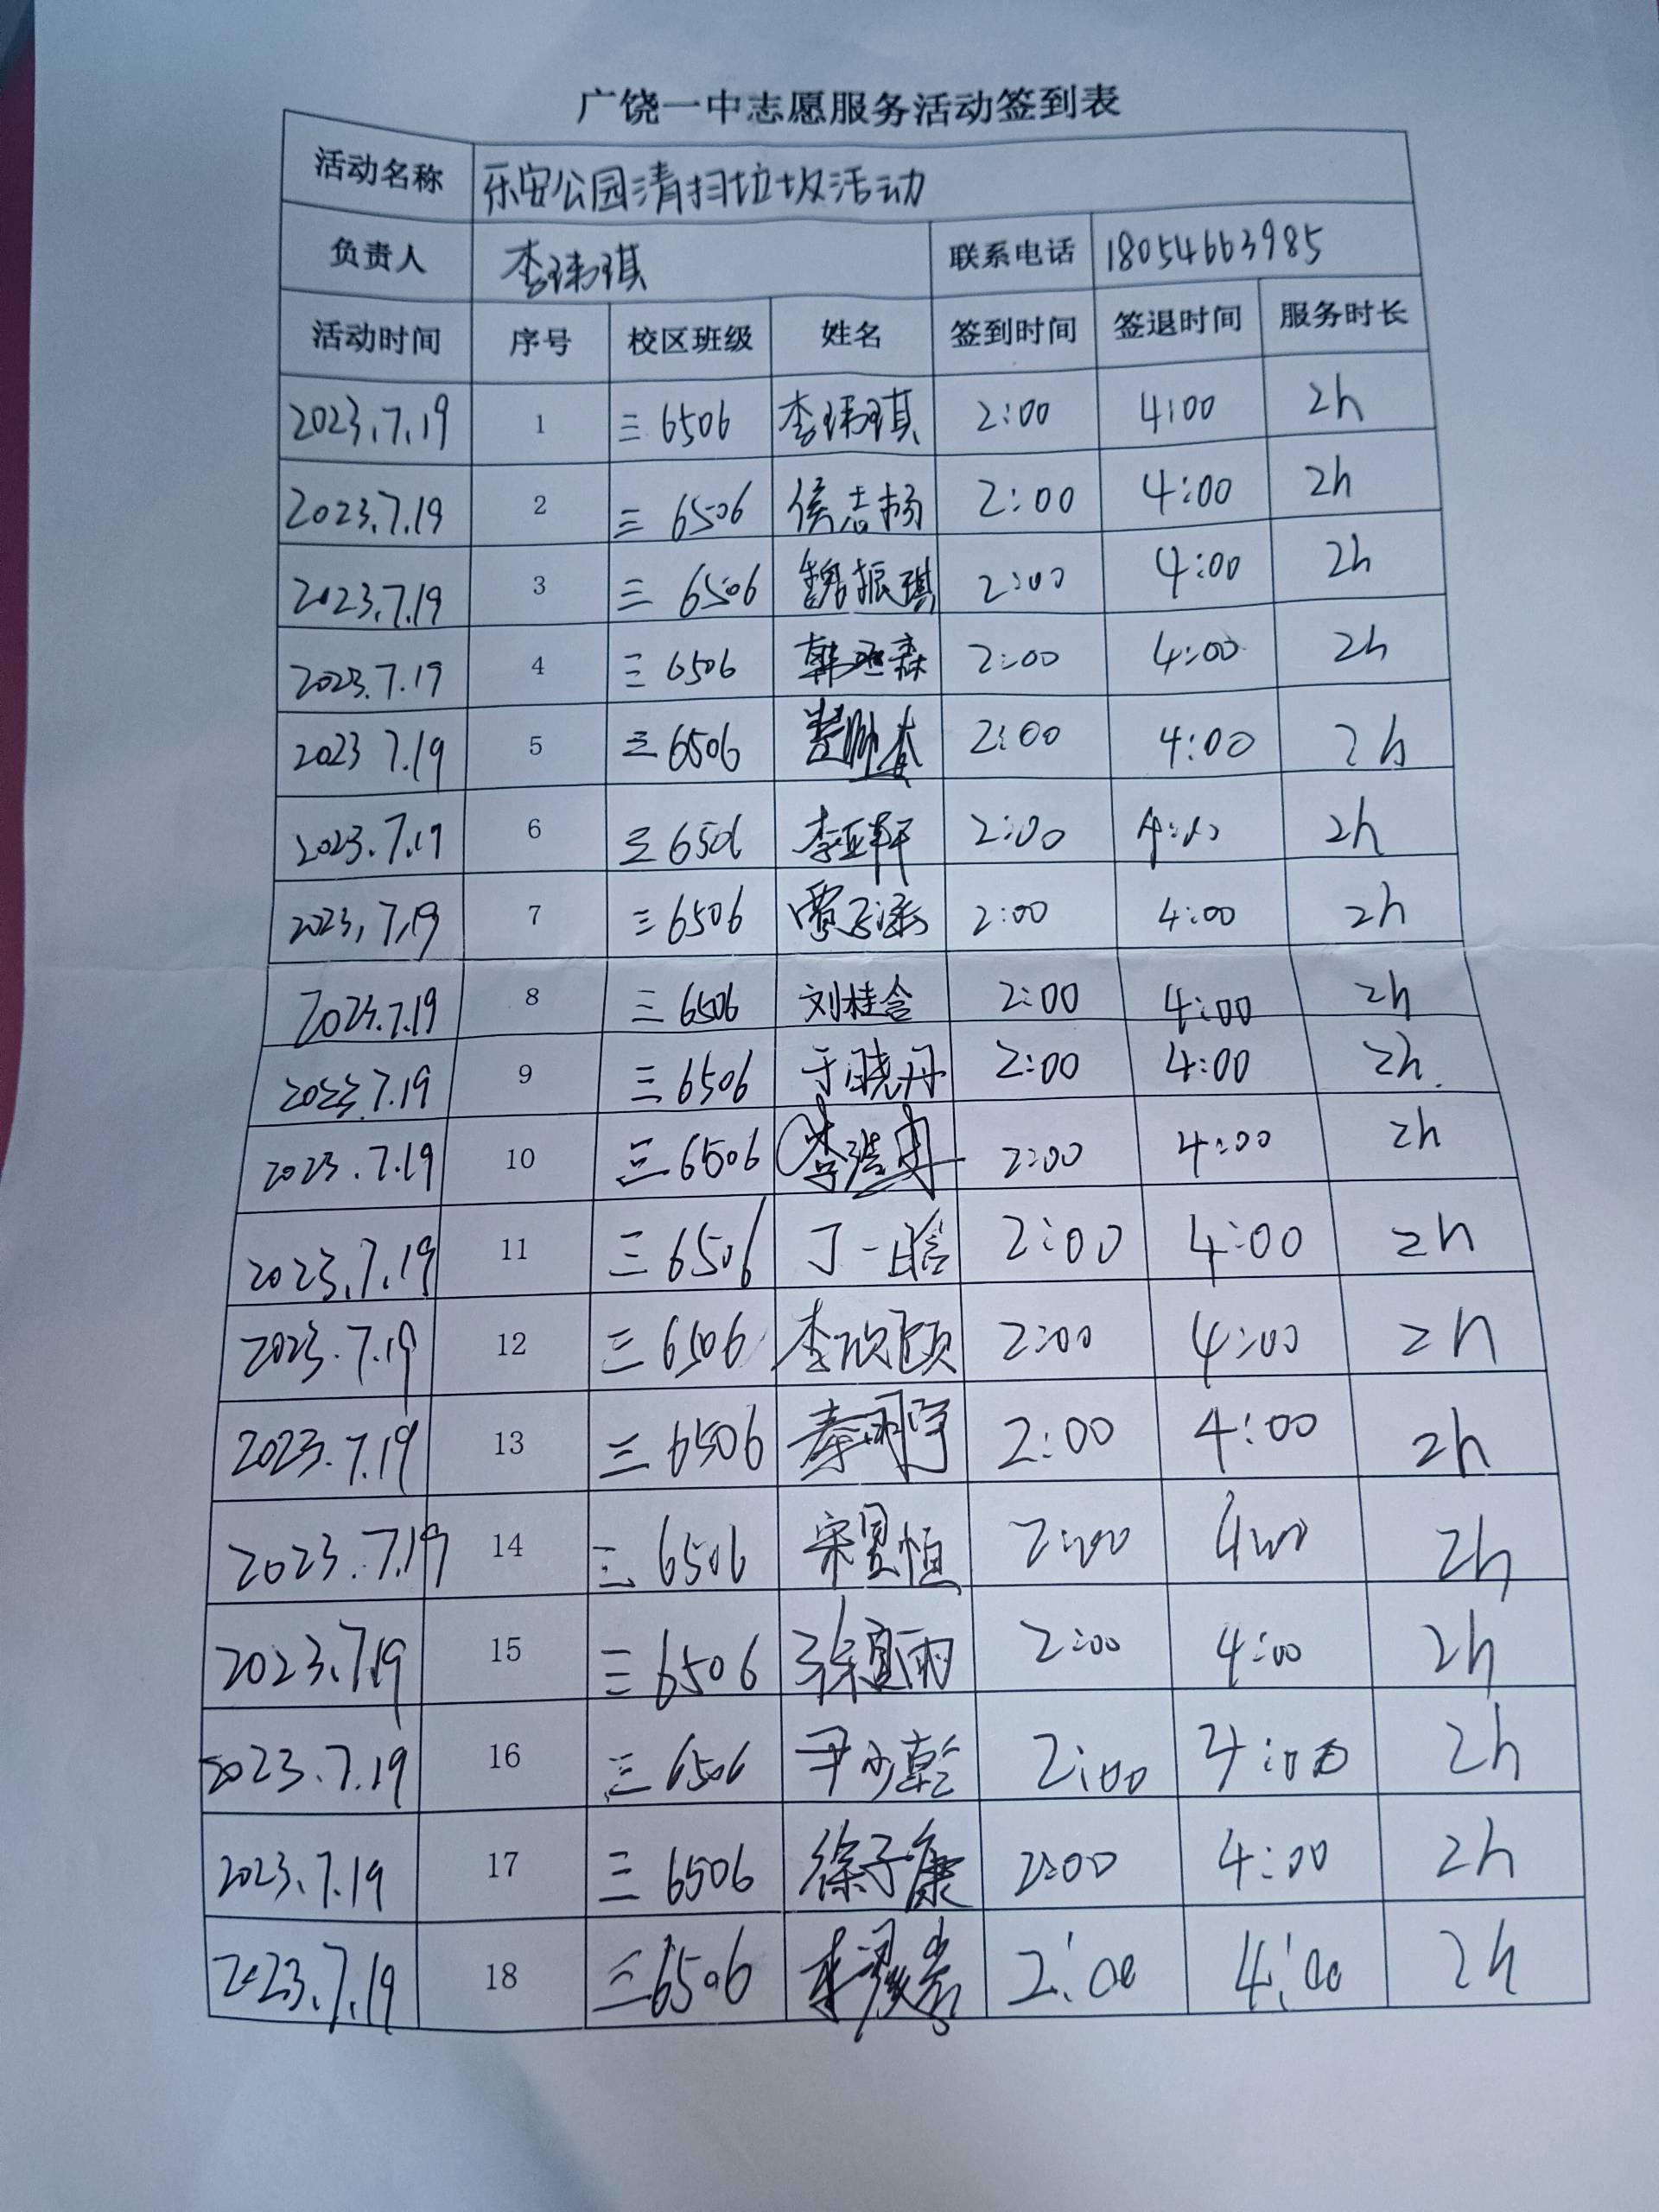 广饶一中志愿服务活动签到表
活动名称 乐安公园清扫垃圾活动
负责人 李玮琪 联系电话 18054663985
活动时间 序号 校区班级 姓名 签到时间 签退时间 服务时长
2023.7.19 1 三 6506 李玮琪 2:00 4:00 2h
2023.7.19 2 三 6506 侯志扬 2:00 4:00 2h
2023.7.19 3 三 6506 魏振琪 2:00 4:00 2h
2023.7.19 4 三 6506 2:00 4:00 2h
2023 7.19 5 三 6506 2:00 4:00 2h
2023.7.19 6 三 6506 李亚轩 2:00 4:00 2h
2023.7.19 7 三 6506 2:00 4:00 2h
2023.7.19 8 三 6506 刘桂含 2:00 4:00 2h
2023.7.19 9 三 6506 于晓丹 2:00 4:00 2h.
2023.7.19 10 三 6506 2:00 4:00 2h
2023.7.19 11 三 6506 丁一晗 2:00 4:00 2h
2023.7.19 12 三 6506 李欣颐 2:00 4:00 2h
2023.7.19 13 三 6506 秦雨宁 2:00 4:00 2h
2023.7.19 14 三 6506 宋昱恒 2:00 4:00 2h
2023.7.19 15 三 6506 徐宜雨 2:00 4:00 2h
2023.7.19 16 三 6506 尹少乾 2:00 4:00 2h
2023.7.19 17 三 6506 徐子康 2:00 4:00 2h
2023.7.19 18 三 6506 2:00 4:00 2h